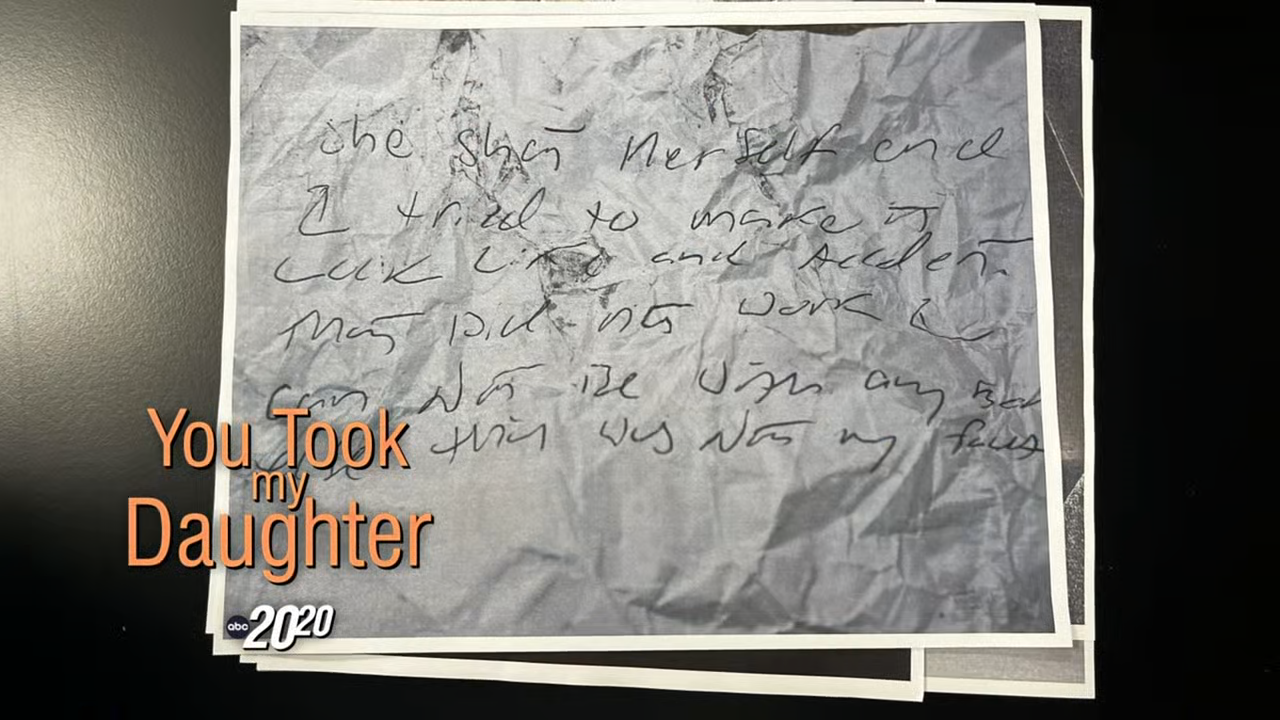 She shot Herself and
I tried to make it
Look Like and Accident
That Did not work I
Can Not Be With any Bod
this was Not my fault
You Took
my
Daughter
abc 2020